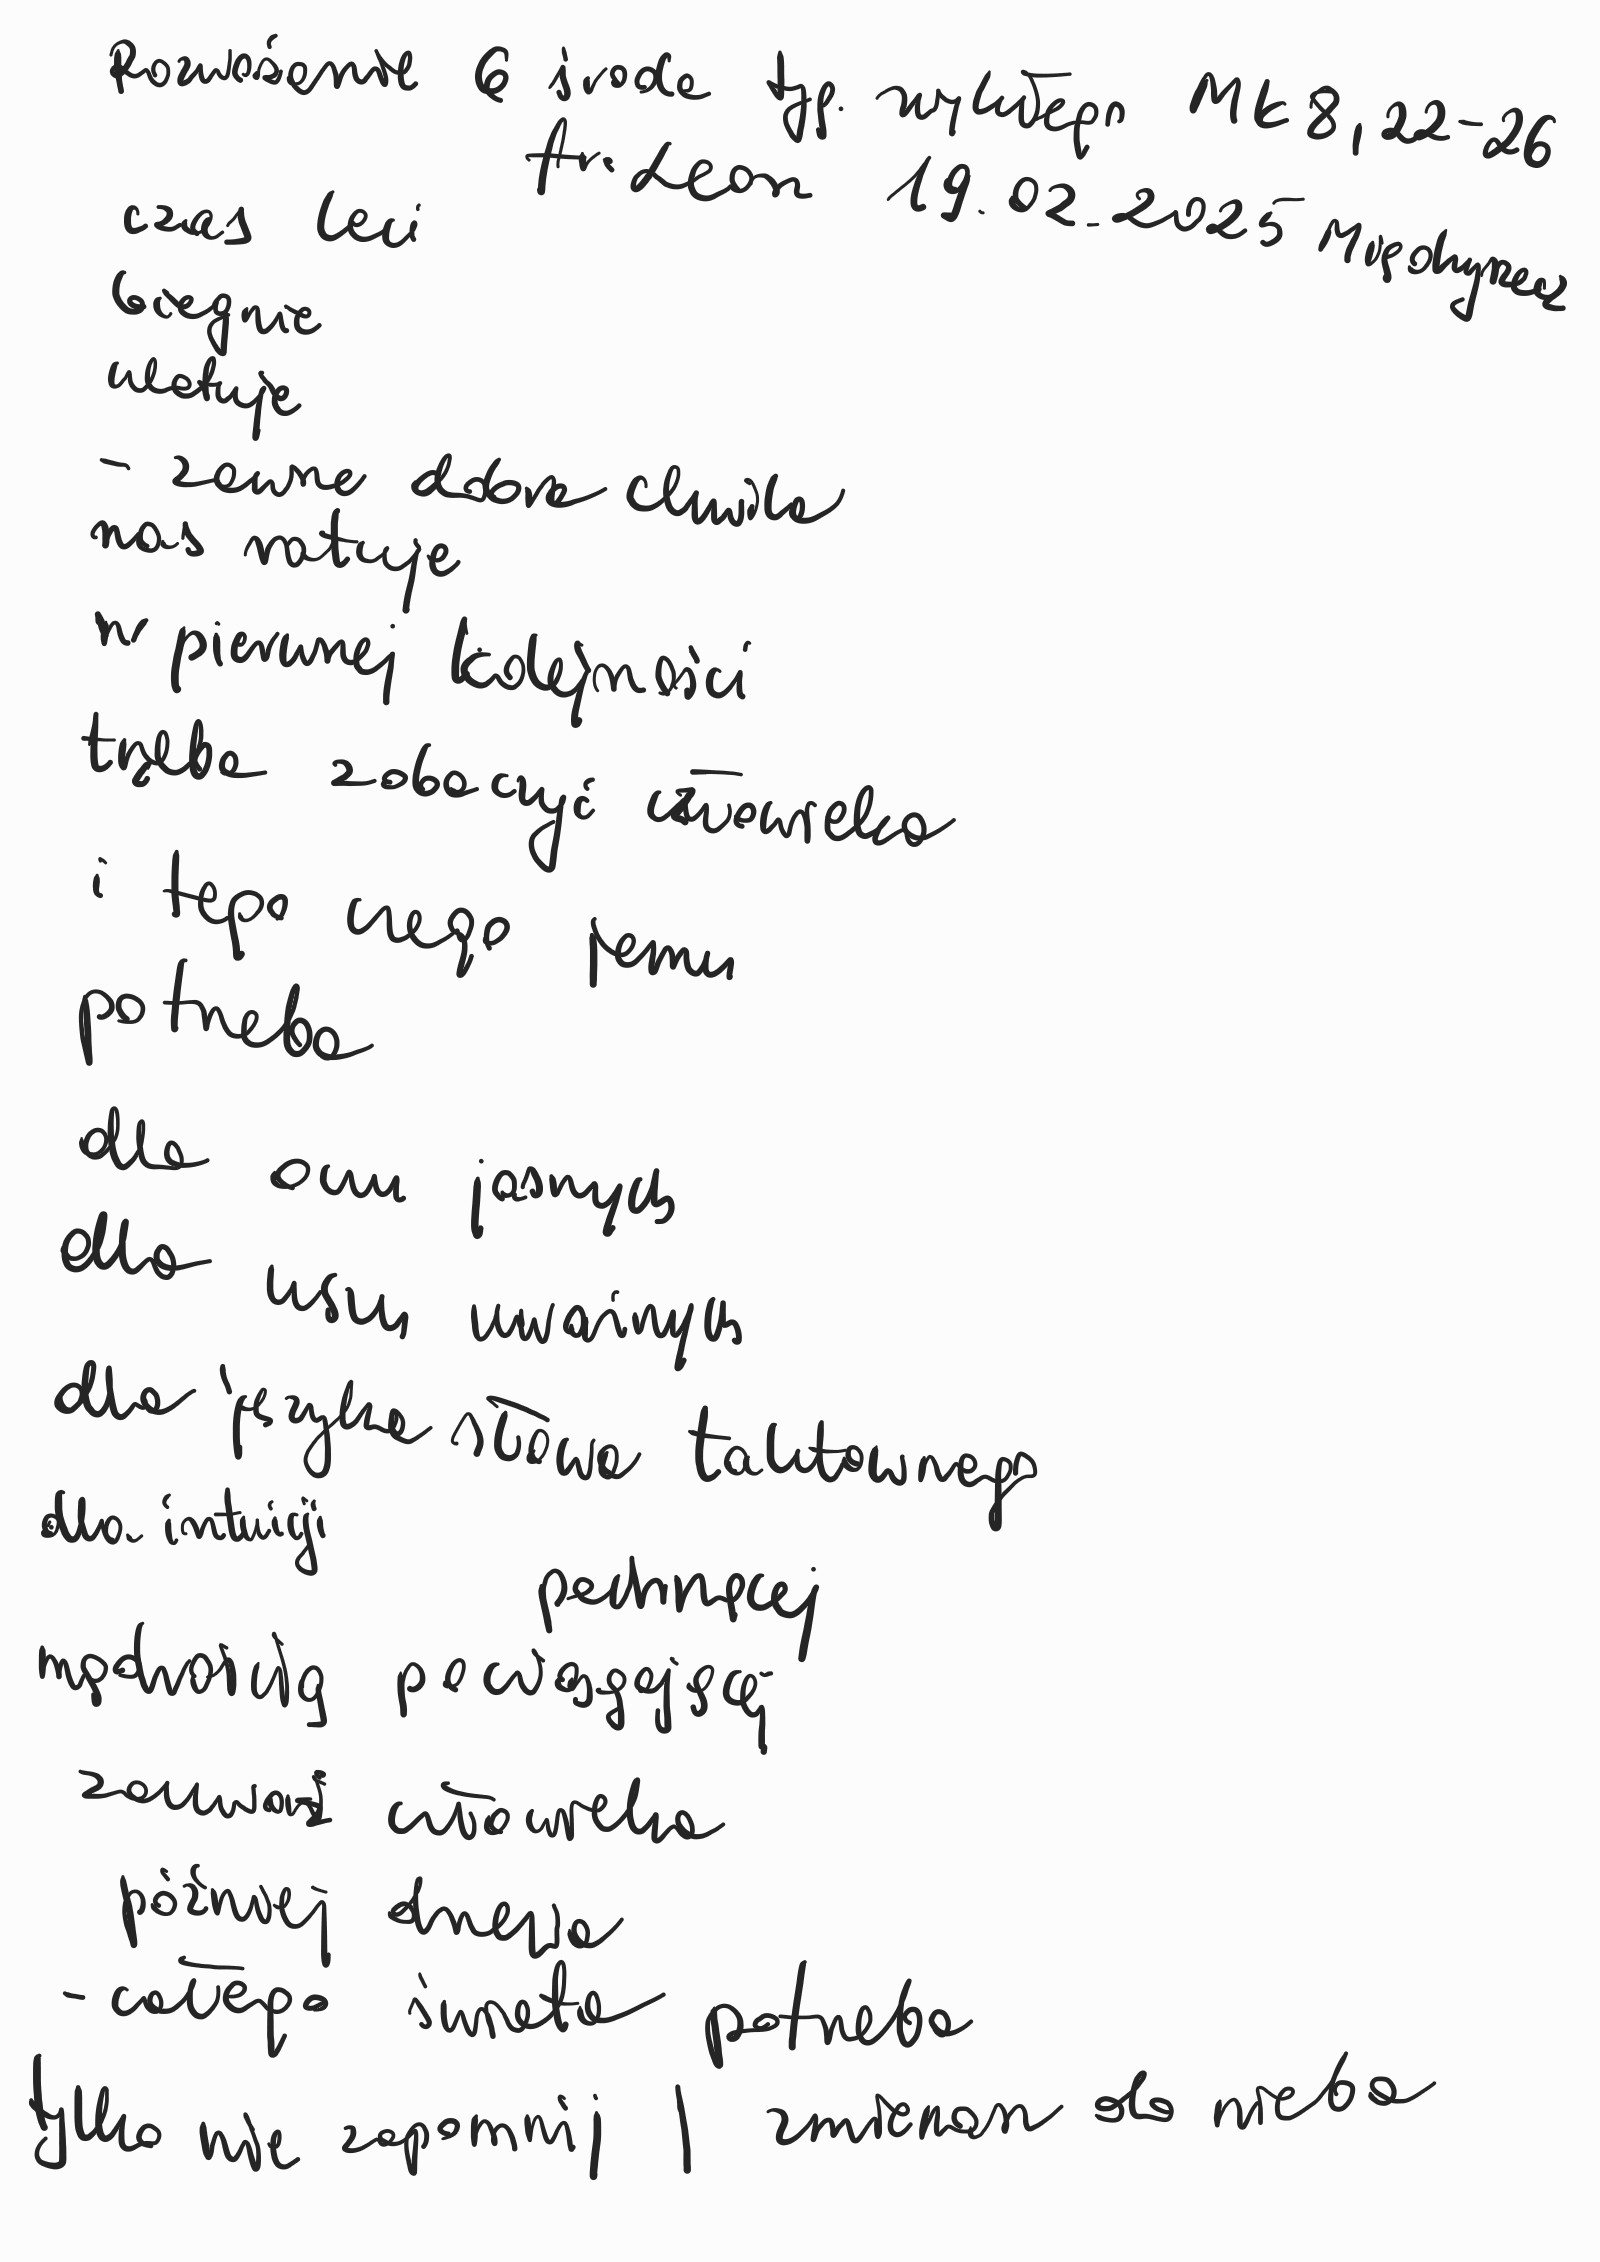 Rozważanie 6 środa tyg. zwykłego Mk 8, 22-26
fr. Leon 19.02.2025 Międzyrzecz
czas leci
biegnie
ulatuje
- zawsze dobra chwila
nas ratuje
w pierwszej kolejności
trzeba zobaczyć człowieka
i tego czego jemu
potrzeba
dla oczu jasnych
dla uszu uważnych
dla języka słowa taktownego
dla intuicji
pachnącej
mądrością pociągającą
zauważ człowieka
później drzewa
- całego świata potrzeba
tylko nie zapomnij | zmierzaj do nieba